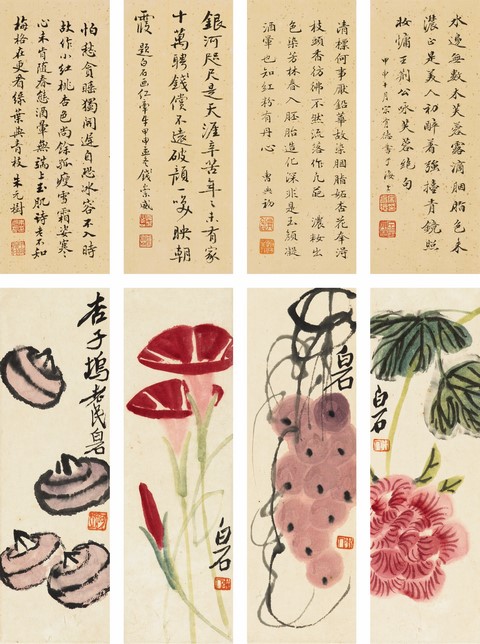 水邊無數木芙蓉露滴胭脂色未
濃正是美人初醉著強擡青鏡照
妝慵 王荊公咏芙蓉絶句
甲申十月
清標何事厭鉛華故染胭脂妬杏花
枝頭香彷彿不然流落作凡葩 濃妝出
色染芳林春入胚胎造化深非是玉顏凝
酒暈也知紅粉有丹心
銀河咫尺是天涯辛苦年年未有家
十萬聘錢償不遠破顏一笑映朝
霞 題白石畫紅牽牛甲申孟冬錢崇威
怕愁貪睡獨開遲自恐冰容不入時
故作小紅桃杏色尚餘孤瘦雪霜姿寒
心未肯隨春態酒暈無端上玉肌詩老不知
梅格在更看綠葉與青枝 朱元樹
白石
白石
白石
杏子塢老民白石